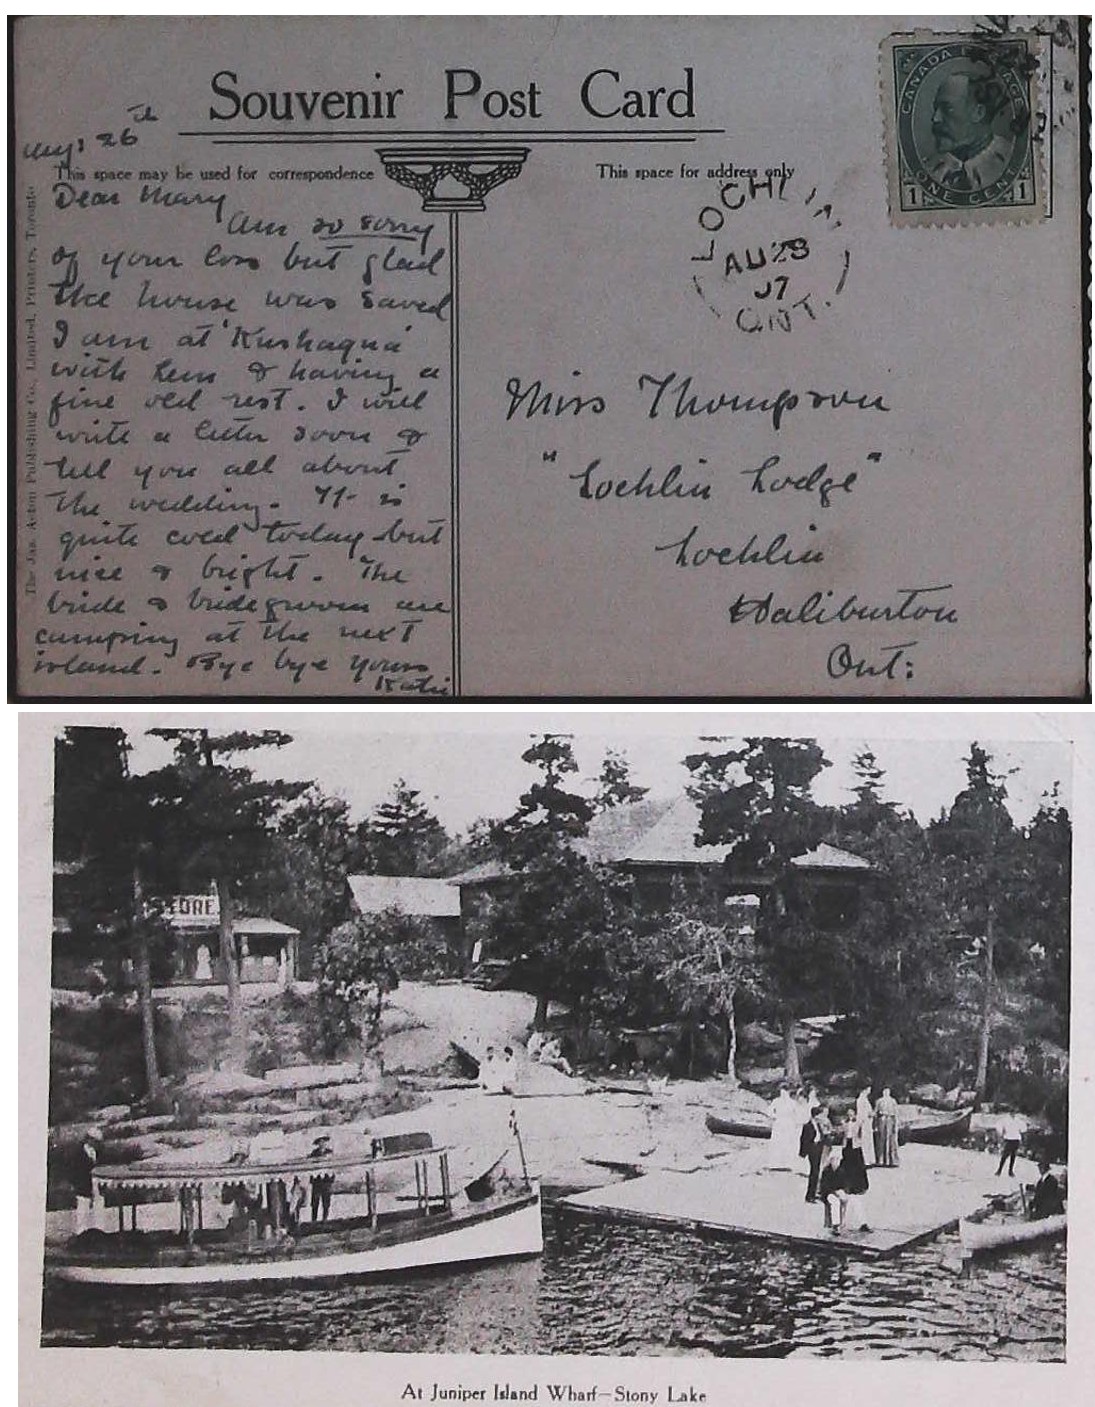 Souvenir Post Card
Aug: 26th
This space may be used for correspondence
This space for address only
The Jas. Acton Publishing Co., Limited, Printers, Toronto
CANADA POSTAGE
1 ONE CENT 1
LOCHLIN
AU 28
07
ONT.
Dear Mary
Am so sorry
of your loss but glad
the house was saved
I am at 'Kushaqua'
with Lem & having a
fine old rest. I will
write a letter soon &
tell you all about
the wedding. It is
quite cool today but
nice & bright. The
bride & bridegroom are
camping at the next
island. Bye bye Yours
Katie
Miss Thompson
"Lochlin Lodge"
Lochlin
Haliburton
Ont:
STORE
At Juniper Island Wharf—Stony Lake